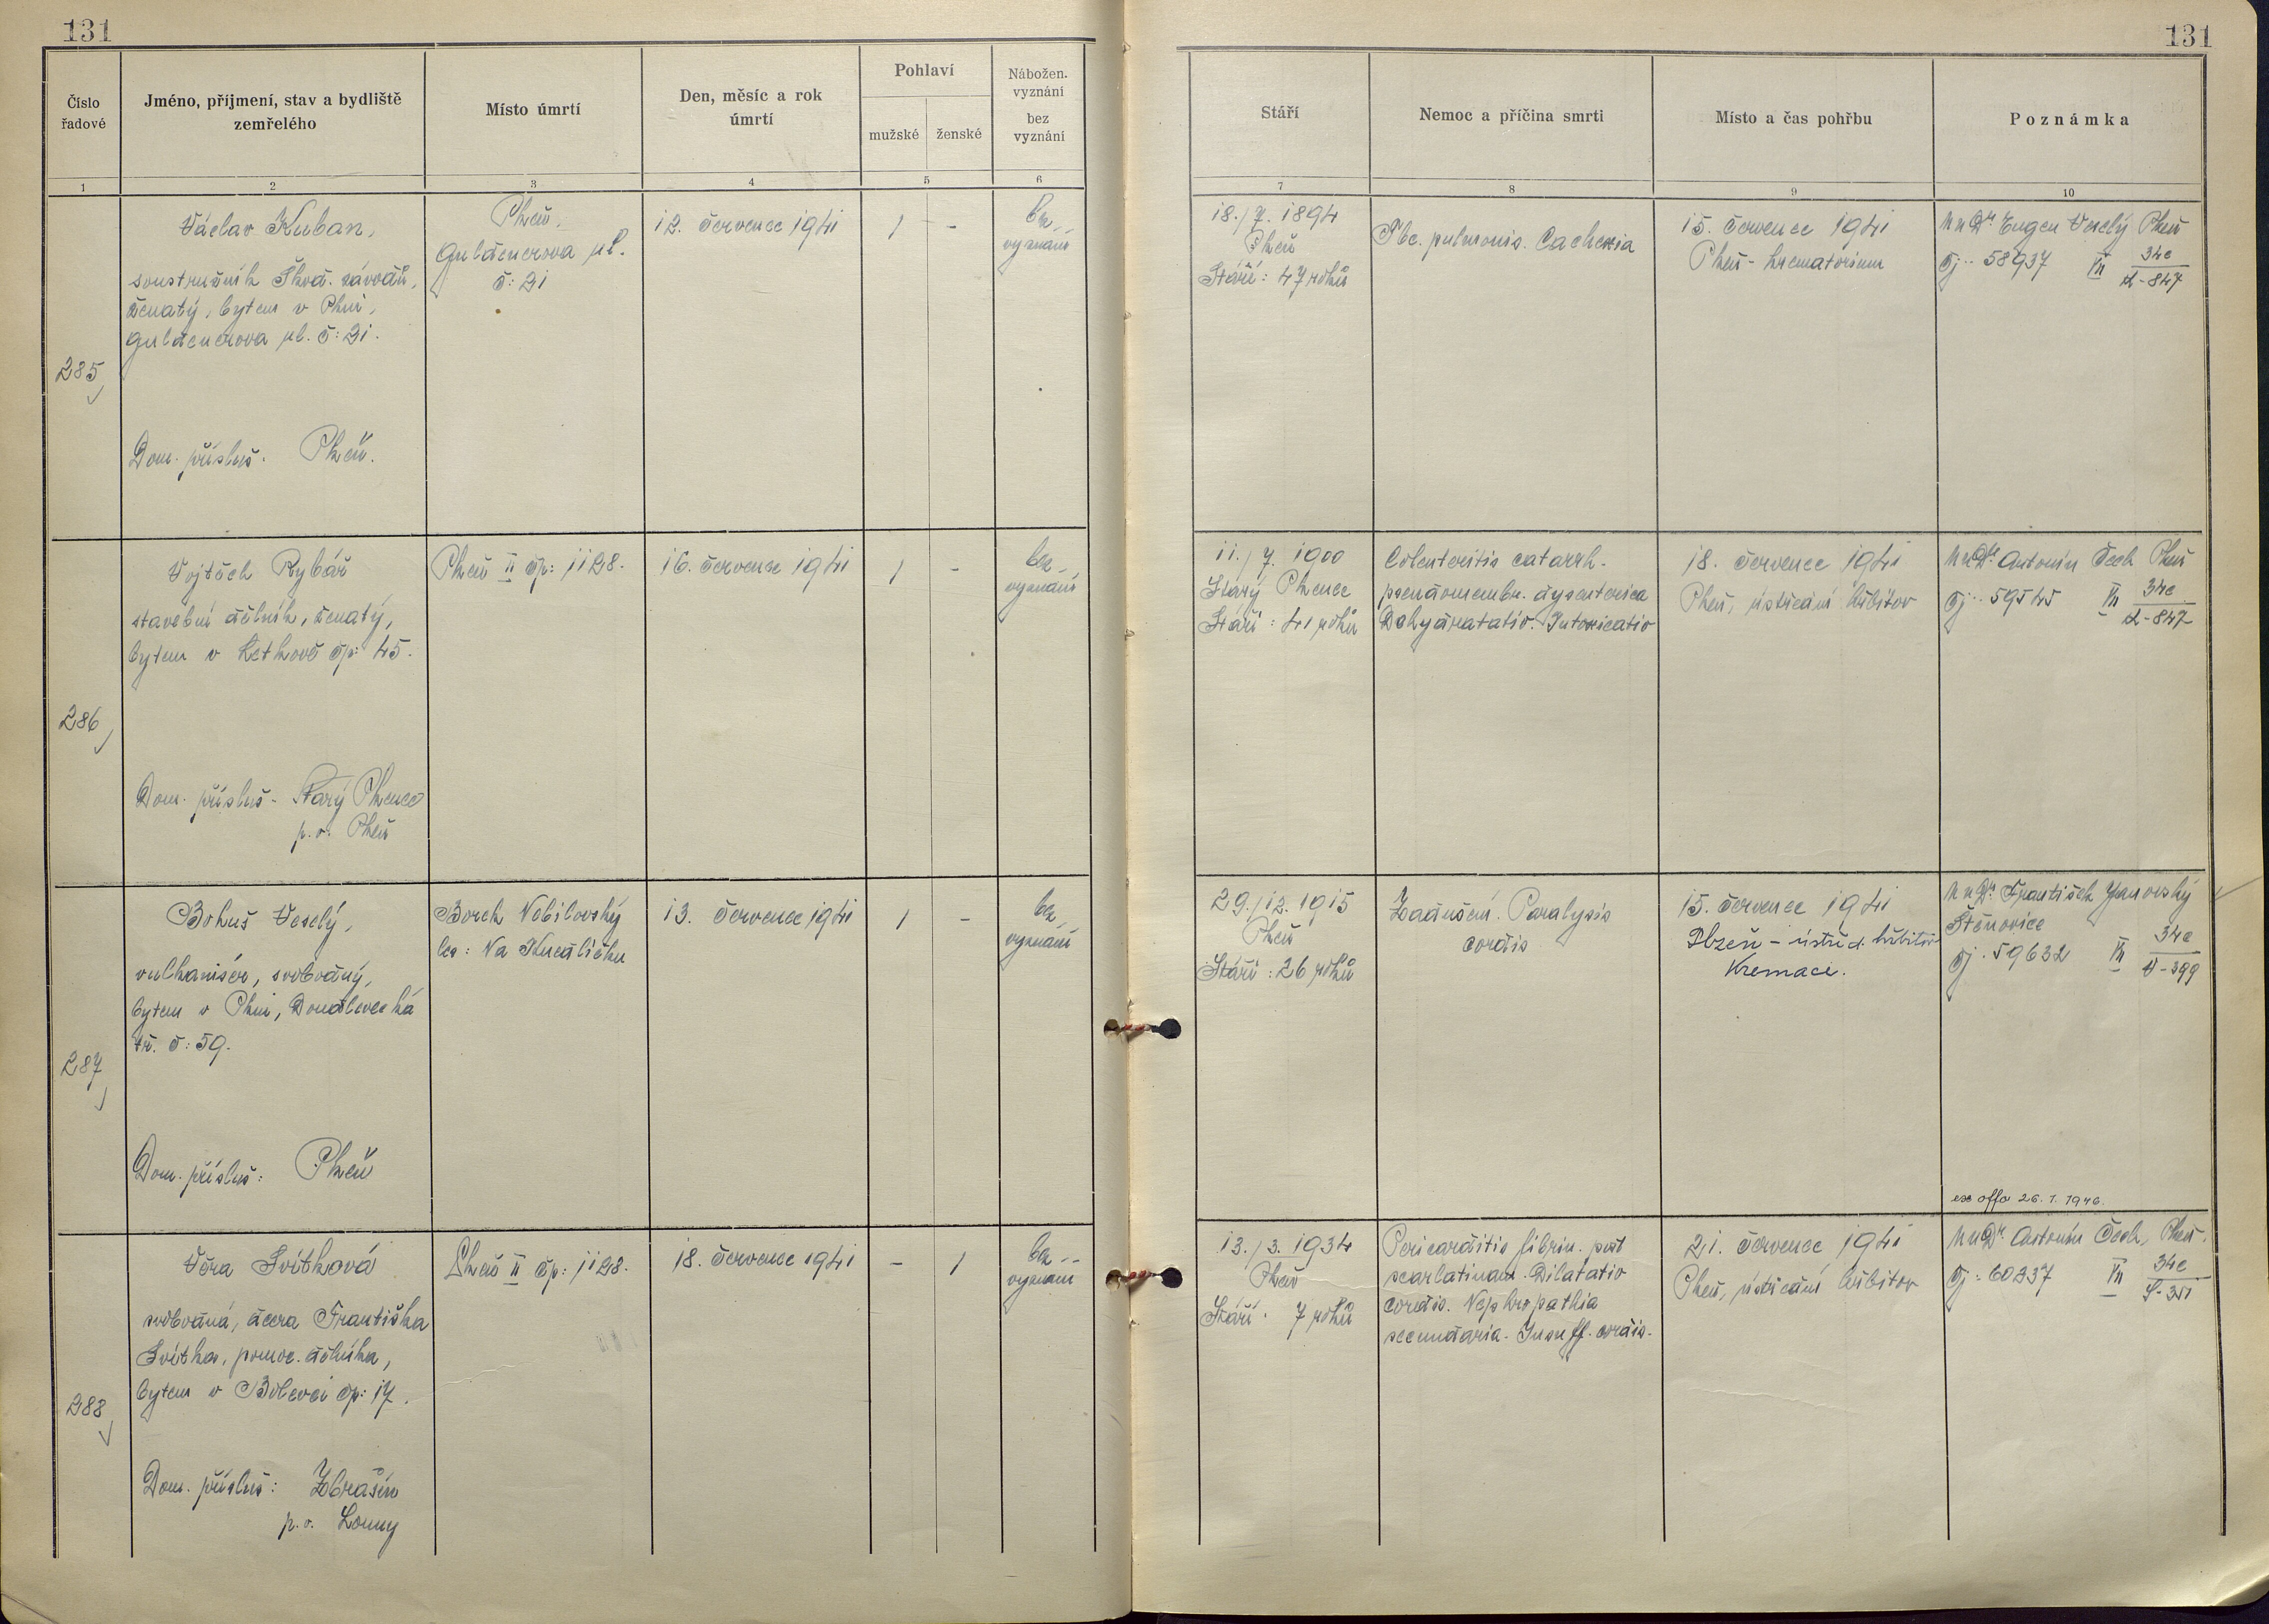 131
131
Číslo řadové
Jméno, příjmení, stav a bydliště
zemřelého
Místo úmrtí
Den, měsíc a rok
úmrtí
Pohlaví
mužské
ženské
Nábožen.
vyznání
bez
vyznání
Stáří
Nemoc a příčina smrti
Místo a čas pohřbu
Poznámka
1
2
3
4
5
6
7
8
9
10
285
Václav Kuban,
soustružník Škod. závodů,
ženatý, bytem v Plzni,
Guldenerova ul. č: 21.
Dom. přísluš. Plzeň.
Plzeň,
Guldenerova ul.
č: 21
12. července 1941
1
-
bez
vyznání
18./7. 1894
Plzeň
Stáří: 47 roků
Tbc. pulmonis. Cachexia
15. července 1941
Plzeň - krematorium
MUDr Eugen Veselý Plzeň
čj. 58937
34c
847
286
Vojtěch Rybář
stavební dělník, ženatý,
bytem v Letkově čp: 45.
Dom. přísluš. Starý Plzenec
p. o. Plzeň
Plzeň II čp: 1128.
16. července 1941
1
-
bez
vyznání
11./7. 1900
Starý Plzenec
Stáří: 41 roků
Colenteritis catarrh.
pseudomembr. dysenterica
Dehydratatio. Intoxicatio
18. července 1941
Plzeň, ústřední hřbitov
MUDr Antonín Čech Plzeň
čj. 59545
34c
847
287
Bohuš Veselý,
vulkanisér, svobodný,
bytem v Plzni, Doudlevecká
tř. č: 59.
Dom. přísluš: Plzeň
Borek Nebílovský
les: Na Knedlíčku
13. července 1941
1
-
bez
vyznání
29./12. 1915
Plzeň
Stáří: 26 roků
Zadušení. Paralysis
cordis
15. července 1941
Plzeň - ústřed. hřbitov
Kremace.
MUDr František Janovský
Štěnovice
čj. 59632
34c
399
ex offo 26. 1. 1946.
288
Věra Svitková
svobodná, dcera Františka
Svitka, pomoc. dělníka,
bytem v Bolevci čp: 17.
Dom. přísluš: Zbrašín
p. o. Louny
Plzeň II čp: 1128.
18. července 1941
-
1
bez
vyznání
13./3. 1934
Plzeň
Stáří: 7 roků
Pericarditis fibrin. post
scarlatinam. Dilatatio
cordis. Nephropathia
secundaria. Insuff. cordis.
21. července 1941
Plzeň, ústřední hřbitov
MUDr Antonín Čech, Plzeň.
čj: 60237
34c